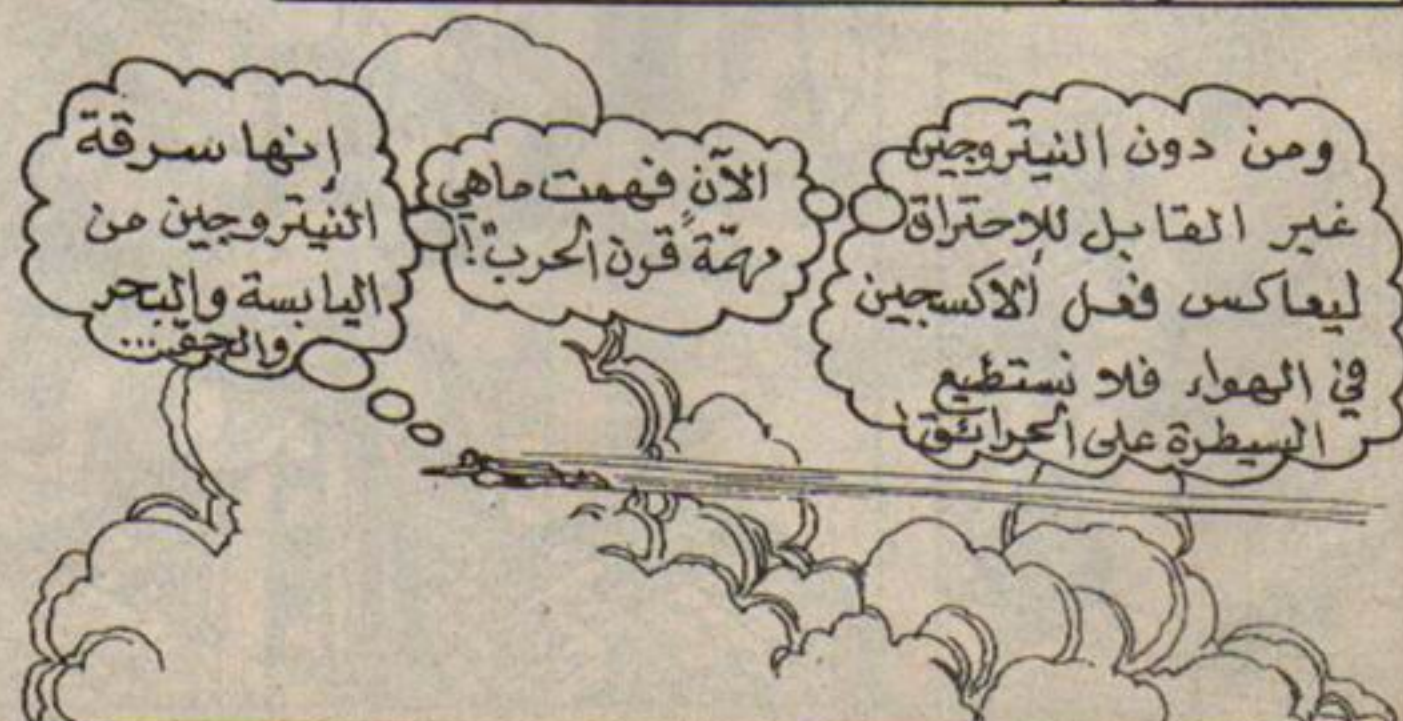 ومن دون النيتروجين
غير القابل للاحتراق
ليعاكس فعل الاكسجين
في الهواء فلا نستطيع
السيطرة على الحرائق!
الآن فهمت ماهي
مهمّة قرن الحرب!
إنها سرقة
النيتروجين من
اليابسة والبحر
والجوّ...